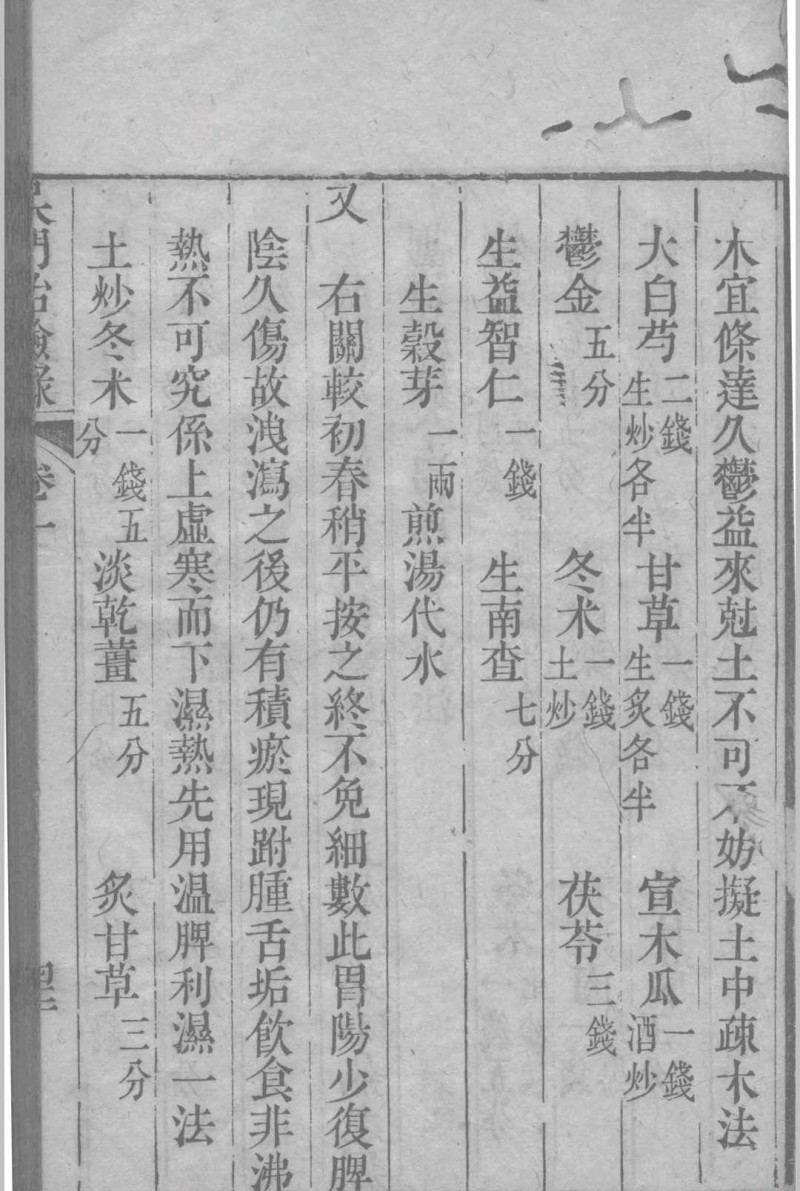 木宜條達久鬱益來尅土不可不妨擬土中疎木法
大白芍二錢生炒各半 甘草一錢生炙各半 宣木瓜一錢酒炒
鬱金五分 冬术一錢土炒 茯苓三錢
生益智仁一錢 生南查七分
生穀芽一兩煎湯代水
又 右關較初春稍平按之終不免細數此胃陽少復脾
陰久傷故洩瀉之後仍有積瘀現跗腫舌垢飲食非沸
熱不可究係上虛寒而下濕熱先用溫脾利濕一法
土炒冬术一錢五分 淡乾薑五分 炙甘草三分
吳門治驗錄 卷一